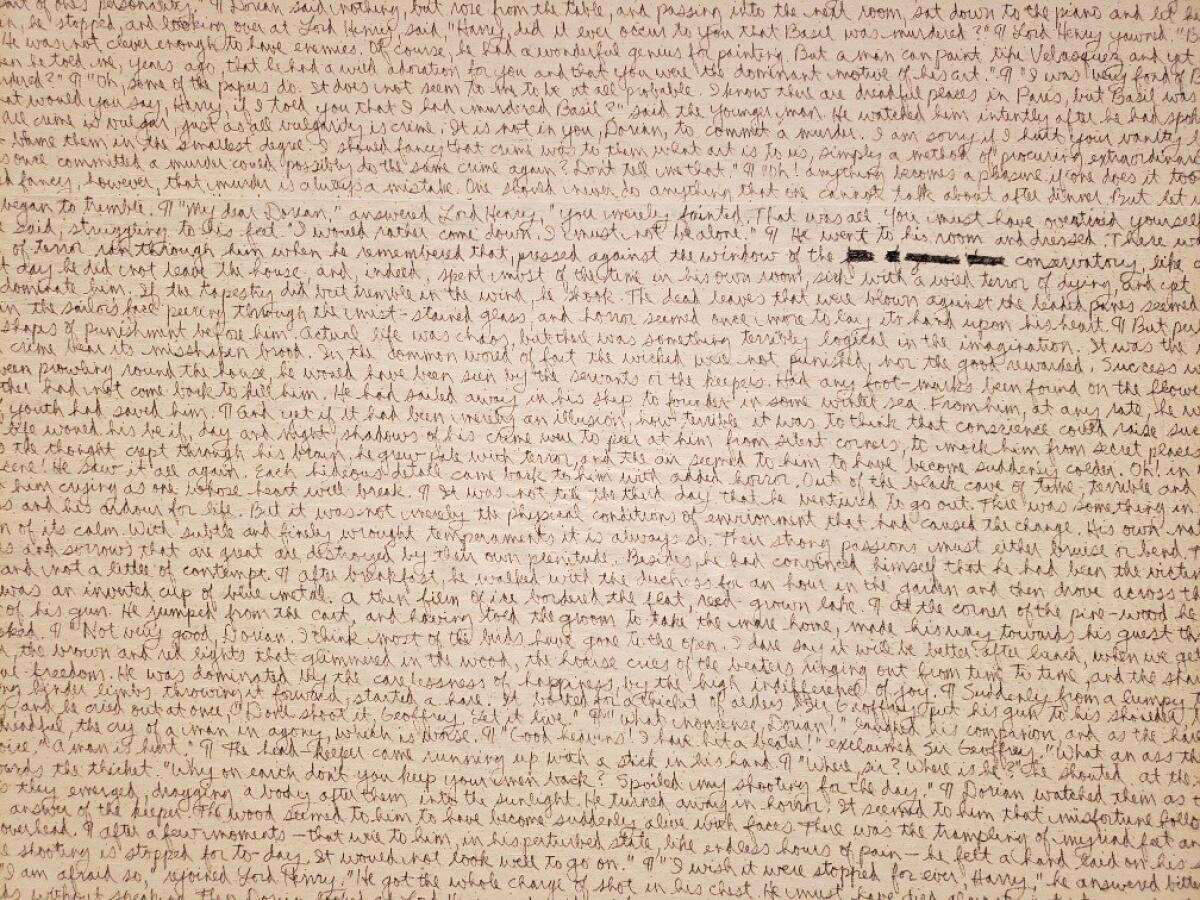 part of one's personality." ¶ Dorian said nothing, but rose from the table, and passing into the next room, sat down to the piano and let
in, he stopped, and looking over at Lord Henry, said, "Harry, did it ever occur to you that Basil was murdered?" ¶ Lord Henry yawned. "B
He was not clever enough to have enemies. Of course, he had a wonderful genius for painting. But a man can paint like Velasquez and yet
he told me, years ago, that he had a wild adoration for you and that you were the dominant motive of his art." ¶ "I was very fond of
dered?" ¶ "Oh, some of the papers do. It does not seem to me to be at all probable. I know there are dreadful places in Paris, but Basil was
at would you say, Harry, if I told you that I had murdered Basil?" said the younger man. He watched him intently after he had spok
all crime is vulgar, just as all vulgarity is crime. It is not in you, Dorian, to commit a murder. I am sorry if I hurt your vanity
blame them in the smallest degree. I should fancy that crime was to them what art is to us, simply a method of procuring extraordinar
once committed a murder could possibly do the same crime again? Don't tell me that." ¶ "Oh! anything becomes a pleasure if one does it too
d fancy, however, that murder is always a mistake. One should never do anything that one cannot talk about after dinner. But let u
began to tremble. ¶ "My dear Dorian," answered Lord Henry, "you merely fainted. That was all. You must have overtired yourself
said, struggling to his feet. "I would rather come down. I must not be alone." ¶ He went to his room and dressed. There wa
of terror ran through him when he remembered that, pressed against the window of the conservatory, like a
t day he did not leave the house, and, indeed, spent most of the time in his own room, sick with a wild terror of dying, and yet
dominate him. If the tapestry did but tremble in the wind, he shook. The dead leaves that were blown against the leaded panes seemed
in the sailor's face peering through the mist-stained glass, and horror seemed once more to lay its hand upon his heart. ¶ But per
shapes of punishment before him. Actual life was chaos, but there was something terribly logical in the imagination. It was the
crime bear its misshapen brood. In the common world of fact the wicked were not punished, nor the good rewarded. Success w
een prowling round the house, he would have been seen by the servants or the keepers. Had any foot-marks been found on the flowe
ther had not come back to kill him. He had sailed away in his ship to founder in some winter sea. From him, at any rate, he w
youth had saved him. ¶ And yet if it had been merely an illusion, how terrible it was to think that conscience could raise suc
life would his be if, day and night, shadows of his crime were to peer at him from silent corners, to mock him from secret places
the thought crept through his brain, he grew pale with terror, and the air seemed to him to have become suddenly colder. Oh! in
cene! He saw it all again. Each hideous detail came back to him with added horror. Out of the black cave of time, terrible and
him crying as one whose heart will break. ¶ It was not till the third day that he ventured to go out. There was something in
s and his ardour for life. But it was not merely the physical conditions of environment that had caused the change. His own na
n of its calm. With subtle and finely wrought temperaments it is always so. Their strong passions must either bruise or bend. T
s and sorrows that are great are destroyed by their own plenitude. Besides, he had convinced himself that he had been the victim
and not a little of contempt. ¶ After breakfast, he walked with the duchess for an hour in the garden and then drove across th
was an inverted cup of blue metal. A thin film of ice bordered the flat, reed-grown lake. ¶ At the corner of the pine-wood he
of his gun. He jumped from the cart, and having told the groom to take the mare home, made his way towards his guest th
sked. ¶ "Not very good, Dorian. I think most of the birds have gone to the open. I dare say it will be better after lunch, when we get
, the brown and red lights that glimmered in the wood, the hoarse cries of the beaters ringing out from time to time, and the shar
ul freedom. He was dominated by the carelessness of happiness, by the high indifference of joy. ¶ Suddenly from a lumpy t
ong hinder limbs throwing it forward, started a hare. It bolted for a thicket of alders. Sir Geoffrey put his gun to his shoulder,
, and he cried out at once, "Don't shoot it, Geoffrey. Let it live." ¶ "What nonsense, Dorian!" laughed his companion, and as the hare
readful, the cry of a man in agony, which is worse. ¶ "Good heavens! I have hit a beater!" exclaimed Sir Geoffrey. "What an ass th
oice. "A man is hurt." ¶ The head-keeper came running up with a stick in his hand. ¶ "Where, sir? Where is he?" he shouted. at the
owards the thicket. "Why on earth don't you keep your men back? Spoiled my shooting for the day." ¶ Dorian watched them as
s they emerged, dragging a body after them into the sunlight. He turned away in horror. It seemed to him that misfortune follo
answer of the keeper. The wood seemed to him to have become suddenly alive with faces. There was the trampling of myriad feet an
overhead. ¶ After a few moments—that were to him, in his perturbed state, like endless hours of pain—he felt a hand laid on his
e shooting is stopped for to-day. It would not look well to go on." ¶ "I wish it were stopped for ever, Harry," he answered bitter
"I am afraid so," rejoined Lord Henry. "He got the whole charge of shot in his chest. He must have died almost
without speaking. Then Dorian looked at Lord Henry